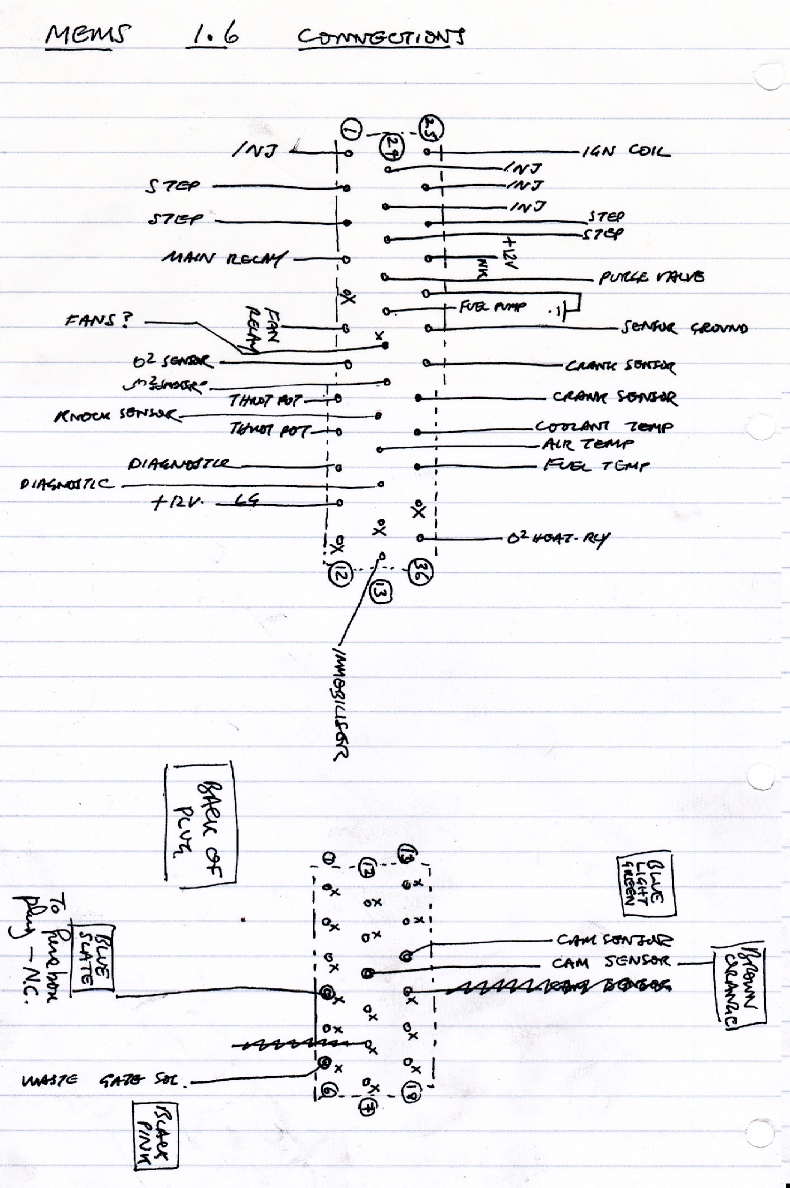 MEMS 1.6 CONNECTIONS
1 24 25
INJ
IGN COIL
INJ
STEP
INJ
INJ
STEP
STEP
STEP
MAIN RELAY
+12V
NK
PURGE VALVE
X
FUEL PUMP
FANS?
FAN
RELAY
X
SENSOR GROUND
O2 SENSOR
CRANK SENSOR
THROT POT
CRANK SENSOR
KNOCK SENSOR
THROT POT
COOLANT TEMP
AIR TEMP
DIAGNOSTIC
FUEL TEMP
DIAGNOSTIC
+12V. LG
X
X
X
O2 HEAT-RLY
12 13 36
IMMOBILISER
BACK OF
PLUG
1 12 13
BLUE
LIGHT
GREEN
X X
X X
X
CAM SENSOR
X
CAM SENSOR
BROWN
ORANGE
To fusebox
plug - N.C.
BLUE
SLATE
X X
CAM SENSOR
X
X X
X
WASTE GATE SOL.
X X
X
6 7 18
BLACK
PINK